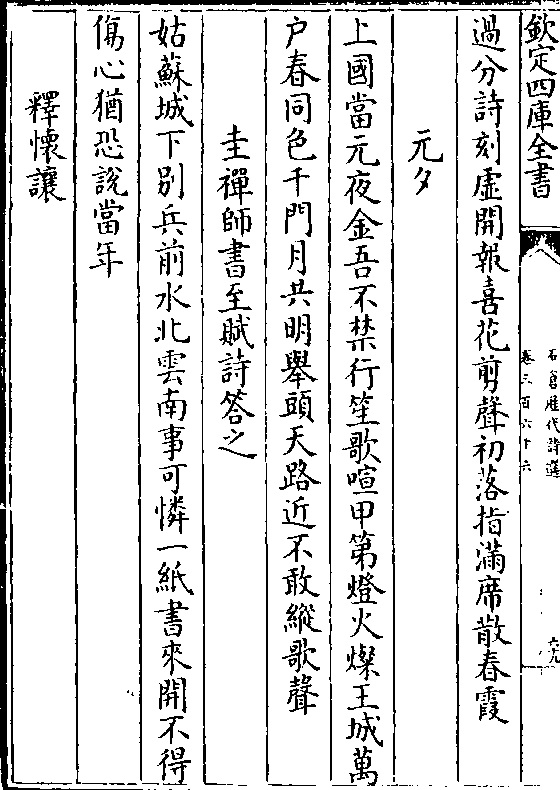 欽定四庫全書
石倉歷代詩選
卷三百六十六
六九
過分詩刻虛開報喜花剪聲初落指滿席散春霞
元夕
上國當元夜金吾不禁行笙歌喧甲第燈火燦王城萬
户春同色千門月共明舉頭天路近不敢縱歌聲
圭禪師書至賦詩答之
姑蘇城下别兵前水北雲南事可憐一紙書來開不得
傷心猶恐說當年
釋懷讓